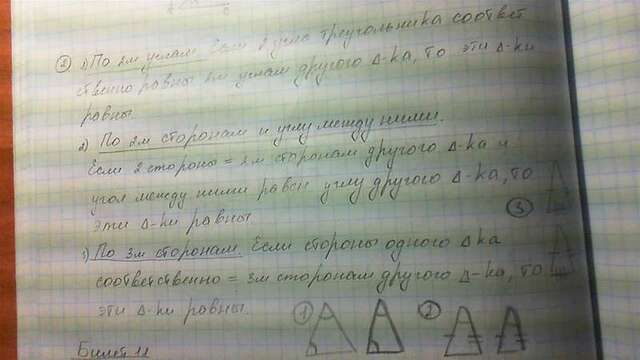 ② 1) По 2м углам Если 2 угла треугольника соответ
ственно равны 2м углам другого Δ-ка, то эти Δ-ки
равны
2) По 2м сторонам и углу между ними.
Если 2 стороны = 2м сторонам другого Δ-ка и
угол между ними равен углу другого Δ-ка, то
эти Δ-ки равны
3) По 3м сторонам. Если стороны одного Δка
соответственно = 3м сторонам другого Δ-ка, то
эти Δ-ки равны.
③
① ②
Билет 11